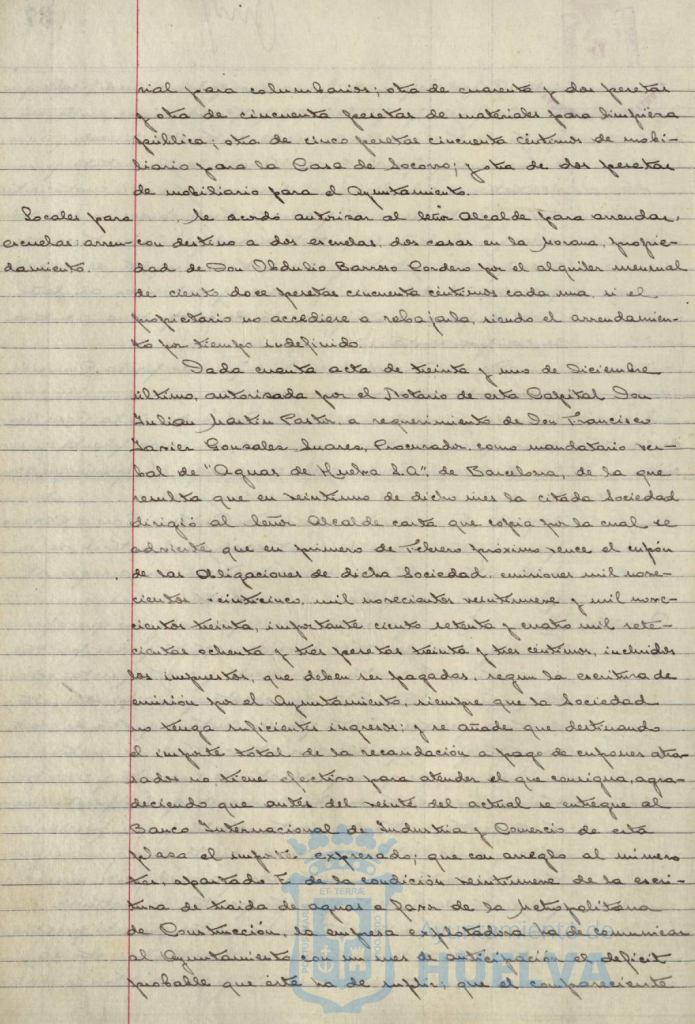 rial para columbarios; otra de cuarenta y dos pesetas
y otra de cincuenta pesetas de materiales para limpieza
pública; otra de cinco pesetas cincuenta céntimos de mobi-
liario para la Casa de Socorro; y otra de dos pesetas
de mobiliario para el Ayuntamiento.
Locales para
escuelas: arren-
damiento.
Se acordó autorizar al Señor Alcalde para arrendar,
con destino a dos escuelas, dos casas en la Morana, propie-
dad de Don Obdulio Barroso Cordero por el alquiler mensual
de ciento doce pesetas cincuenta céntimos cada una, si el
propietario no accediere a rebajarla, siendo el arrendamien-
to por tiempo indefinido.
Dada cuenta acta de treinta y uno de Diciembre
último, autorizada por el Notario de esta Capital Don
Julian Martin Pastor, a requerimiento de Don Francisco
Javier Gonzalez Suarez, Procurador, como mandatario ver-
bal de "Aguas de Huelva S.A", de Barcelona, de la que
resulta que en veintiuno de dicho mes la citada Sociedad
dirigió al Señor Alcalde carta que copia por la cual se
advierte que en primero de Febrero próximo vence el cupón
de las Obligaciones de dicha Sociedad, emisiones mil nove-
cientos veinticinco, mil novecientos veintinueve y mil nove-
cientos treinta, importante ciento setenta y cuatro mil sete-
cientas ochenta y tres pesetas treinta y tres céntimos, incluidos
los impuestos, que deben ser pagadas, segun la escritura de
emisión por el Ayuntamiento, siempre que la Sociedad
no tenga suficientes ingresos; y se añade que destinando
el importe total de la recaudación a pago de cupones atra-
sados no tiene efectivo para atender el que consigna, agra-
deciendo que antes del veinte del actual se entregue al
Banco Internacional de Industria y Comercio de esta
plaza el importe expresado; que con arreglo al número
tres, apartado F. de la condición veintinueve de la escri-
tura de traida de aguas a favor de la Metropolitana
de Construcción, la empresa explotadora ha de comunicar
al Ayuntamiento con un mes de anticipación el deficit
probable que éste ha de suplir; que el compareciente
PORTUS MARIS ET TERRAE CUSTODIA
AYUNTAMIENTO DE
HUELVA